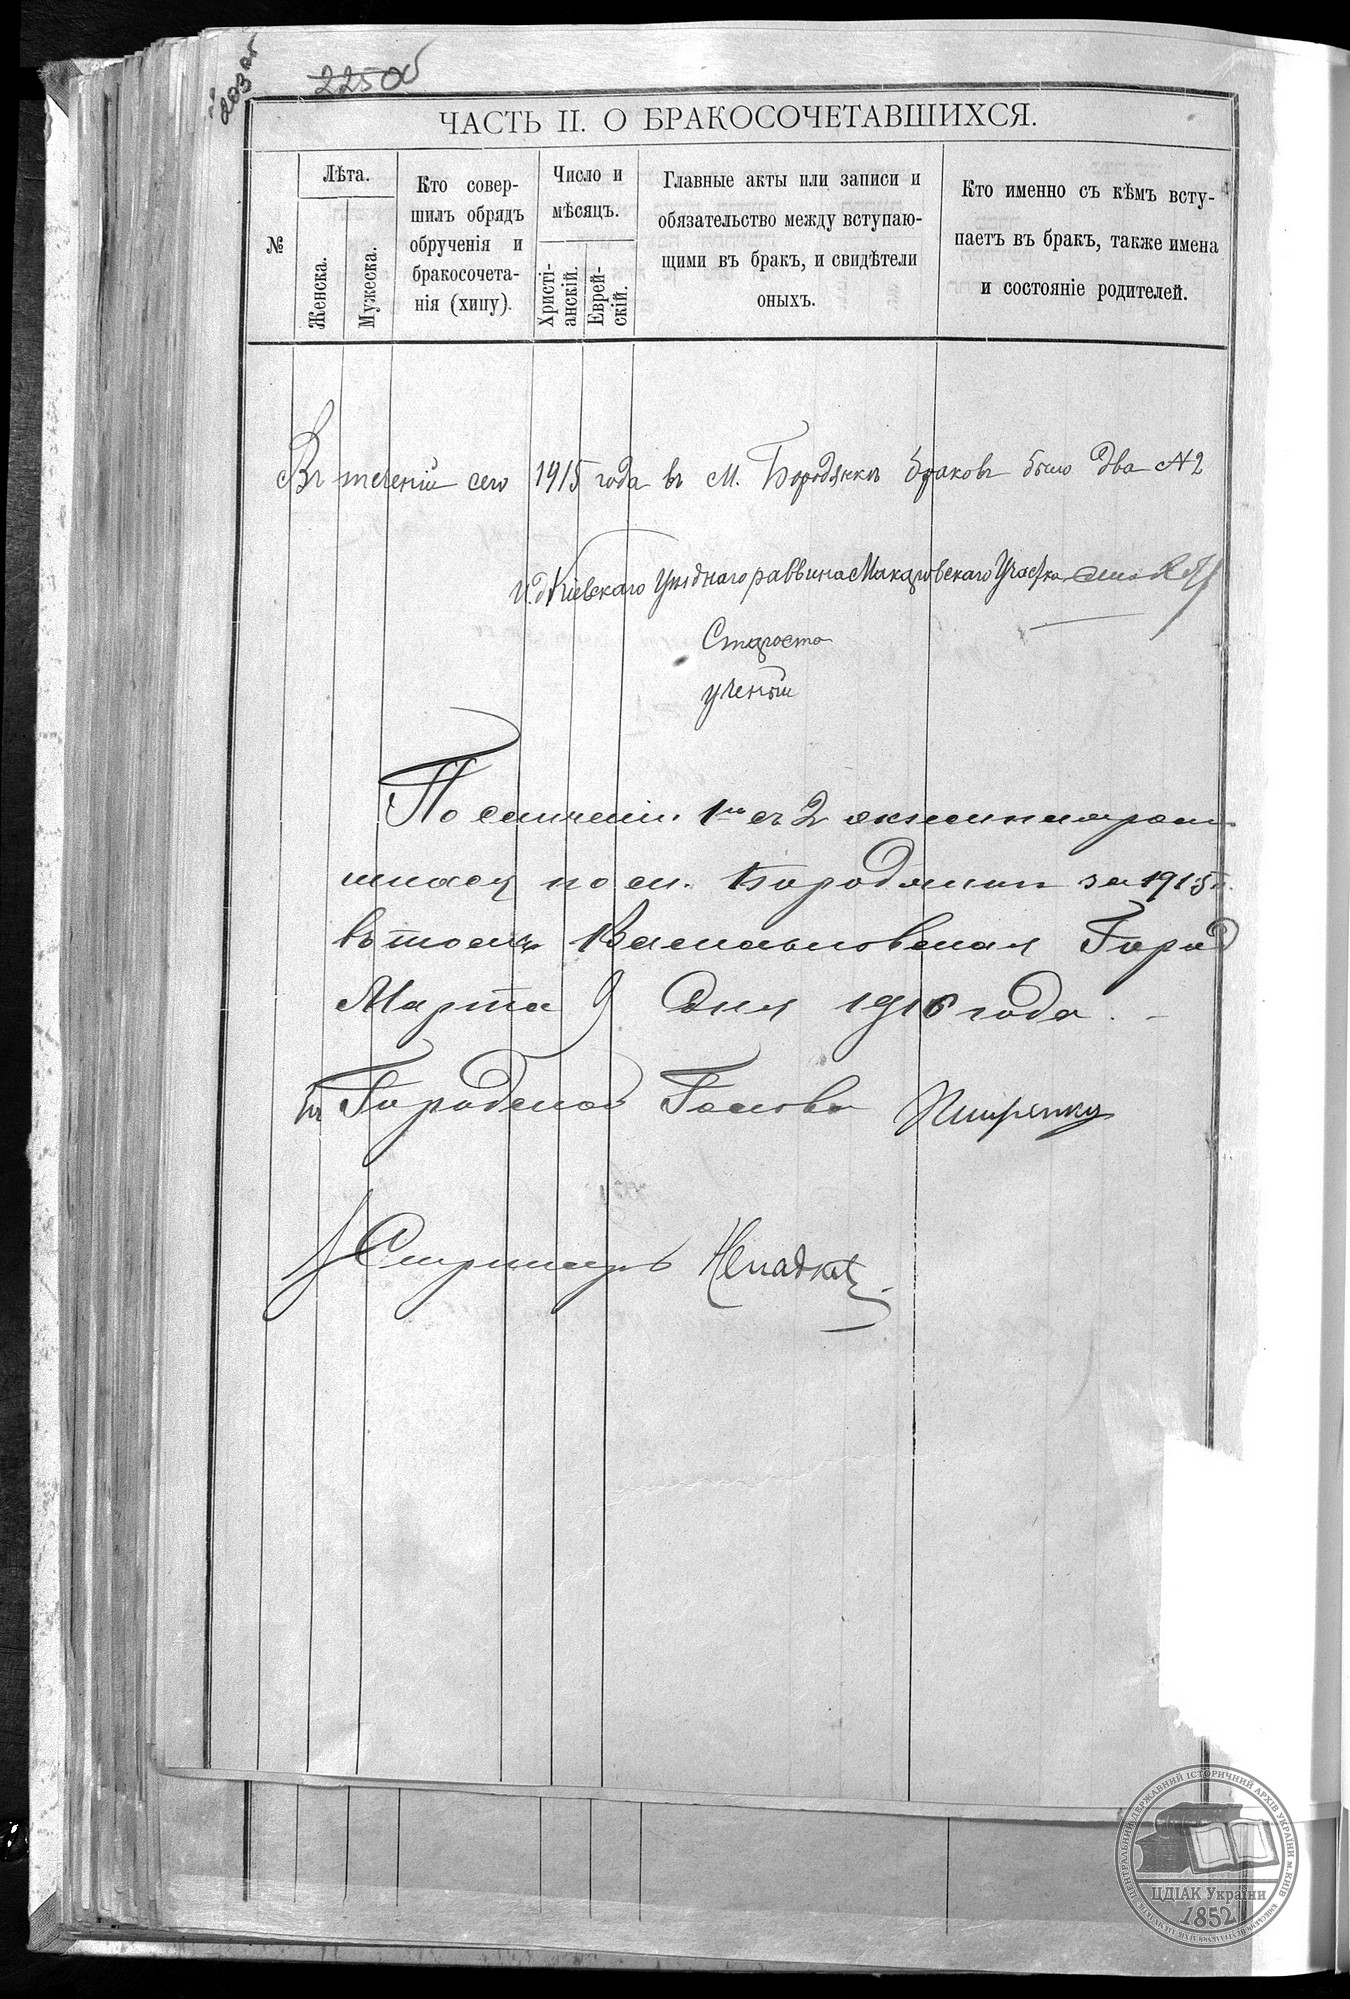 203 об
225 об
ЧАСТЬ II. О БРАКОСОЧЕТАВШИХСЯ.
№
Лѣта.
Женска.
Мужеска.
Кто совер-
шилъ обрядъ
обрученія и
бракосочета-
нія (хипу).
Число и
мѣсяцъ.
Христі-
анскій.
Еврей-
скій.
Главные акты или записи и
обязательство между вступаю-
щими въ бракъ, и свидѣтели
оныхъ.
Кто именно съ кѣмъ всту-
паетъ въ бракъ, также имена
и состояніе родителей.
Въ теченіи сего 1915 года въ м. Бородянкѣ браковъ было два №2
И.д Кіевскаго Уѣзднаго раввина Макаровскаго Участка
Староста
Ученый
По сличеніи 1го съ 2 экземпляром
по м. Бородянки за 1915 г.
въ томъ Васильковская Город
Марта 9 дня 1916 года.
Городской Голова
Секретарь
ЦЕНТРАЛЬНИЙ ДЕРЖАВНИЙ ІСТОРИЧНИЙ АРХІВ УКРАЇНИ м. КИЇВ
ЦДІАК України
1852